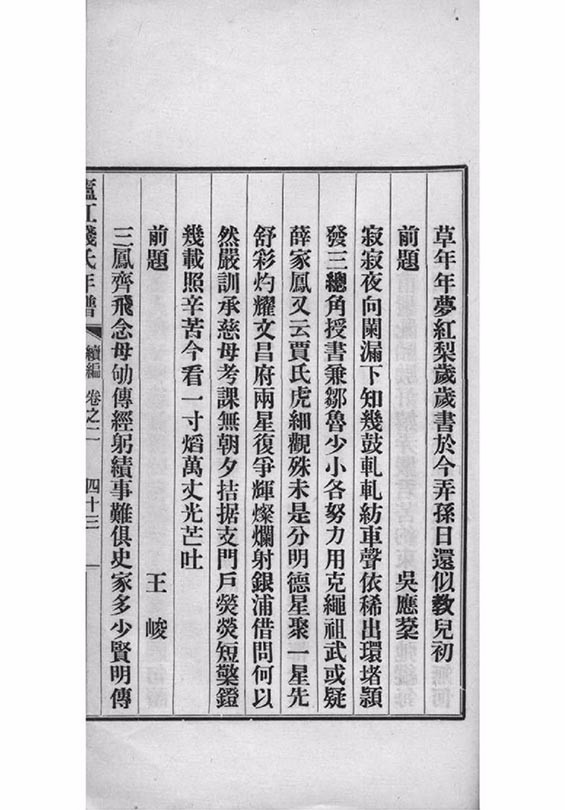 草年年夢紅梨歲歲書於今弄孫日還似教兒初
前題 吳應棻
寂寂夜向闌漏下知幾鼓軋軋紡車聲依稀出環堵頴
發三總角授書兼鄒魯少小各努力用克繩祖武或疑
薛家鳳又云賈氏虎細觀殊未是分明德星聚一星先
舒彩灼耀文昌府兩星復爭輝燦爛射銀浦借問何以
然嚴訓承慈母考課無朝夕拮据支門戶熒熒短檠鐙
幾載照辛苦今看一寸熖萬丈光芒吐
前題 王峻
三鳳齊飛念母劬傳經躬績事難俱史家多少賢明傳
廬江錢氏年譜 續編 卷之二 四十三